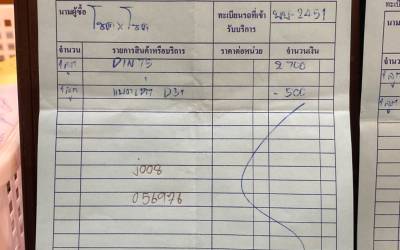 นามผู้ซื้อ โชค x โชค ทะเบียนรถที่เข้ารับบริการ 2451
จำนวน รายการสินค้าหรือบริการ ราคาต่อหน่วย จำนวนเงิน
1 ลูก DIN 75 2700
1 ลูก แบตเก่า D31 - 500
J008
056976
จำนวน
1 ลูก
1 ลูก